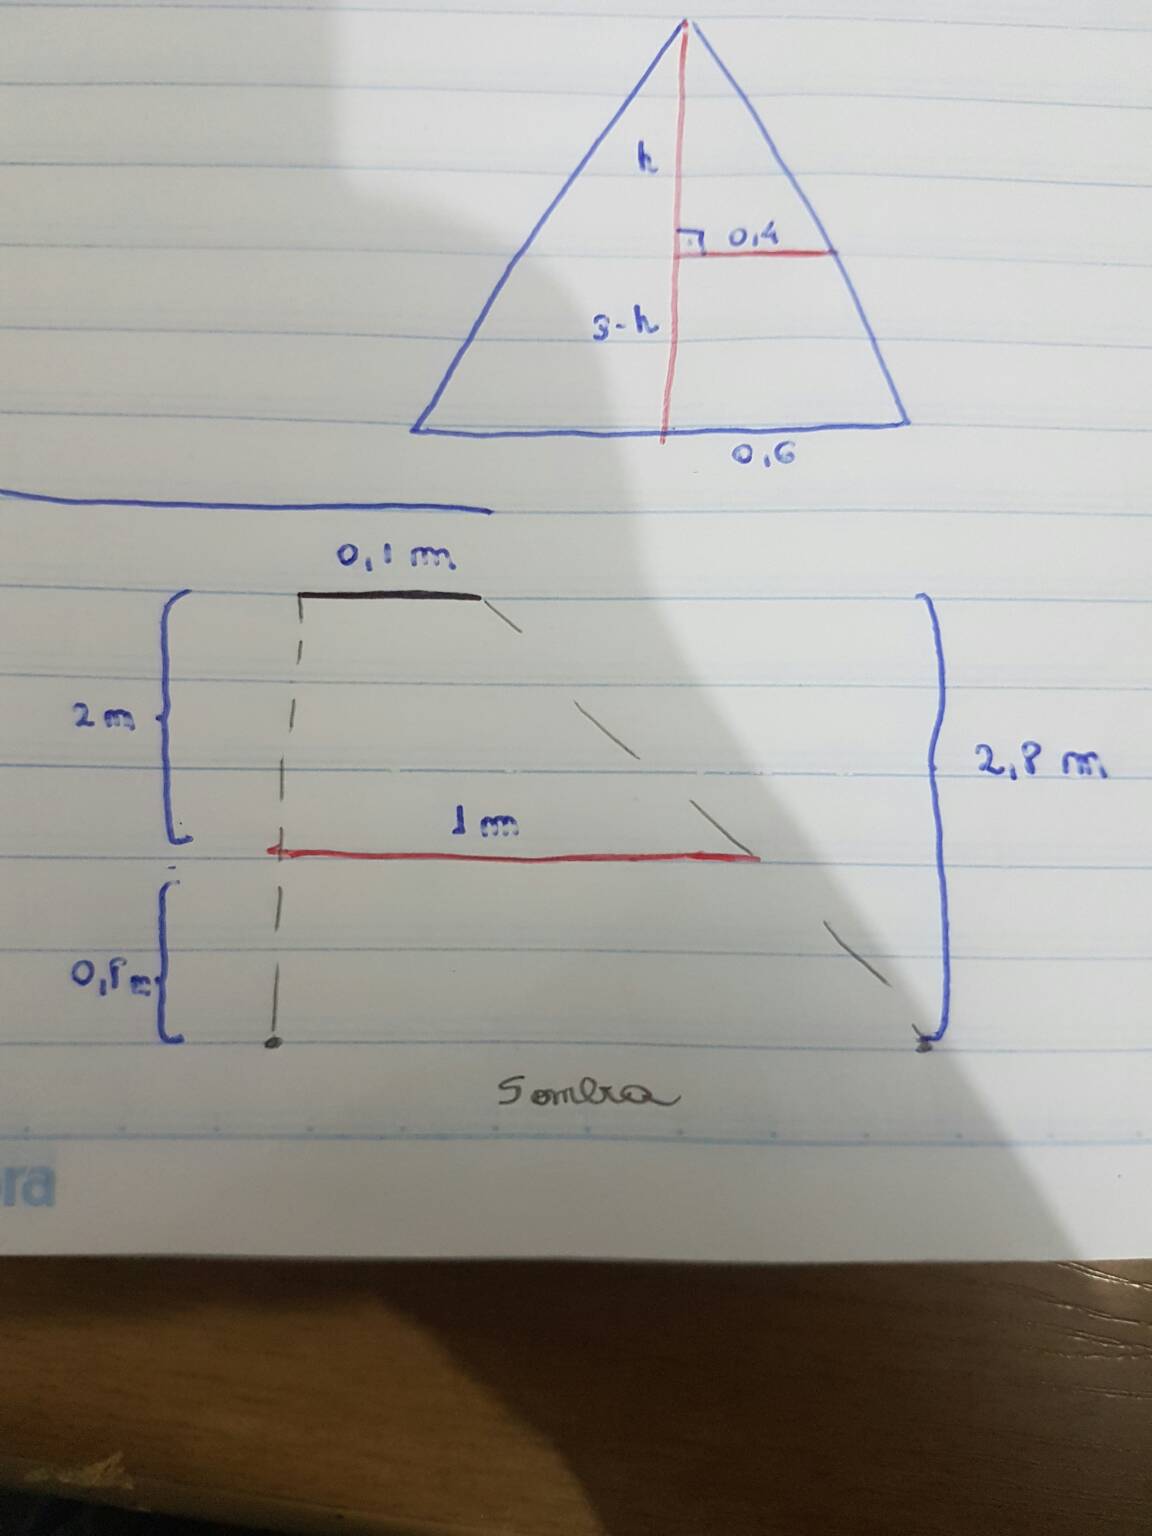 h
0,4
3-h
0,6
0,1 m
2 m
2,8 m
1 m
0,8 m
Sombra
ra